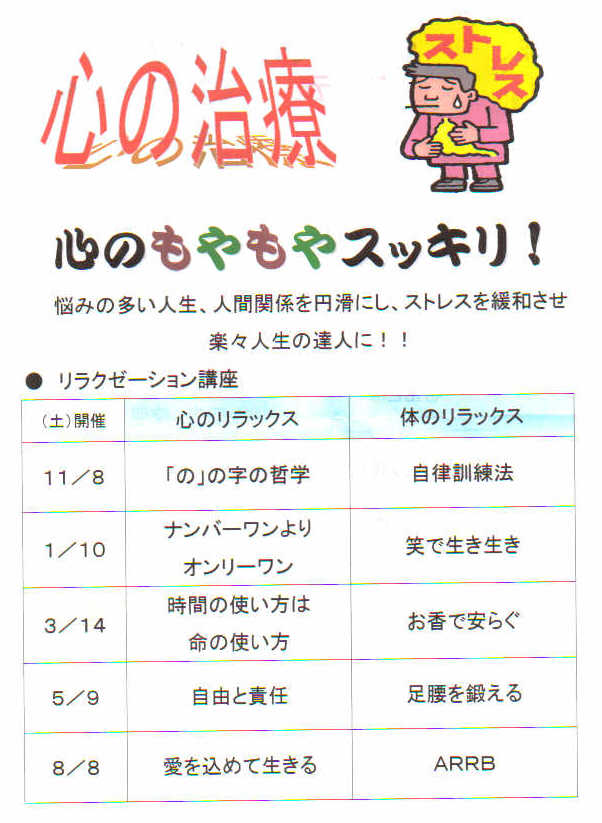 心の治療
ストレス
心のもやもやスッキリ！
悩みの多い人生、人間関係を円滑にし、ストレスを緩和させ
楽々人生の達人に！！
● リラクゼーション講座
（土）開催 心のリラックス 体のリラックス
11／8 「の」の字の哲学 自律訓練法
1／10 ナンバーワンより
オンリーワン 笑で生き生き
3／14 時間の使い方は
命の使い方 お香で安らぐ
5／9 自由と責任 足腰を鍛える
8／8 愛を込めて生きる ARRB